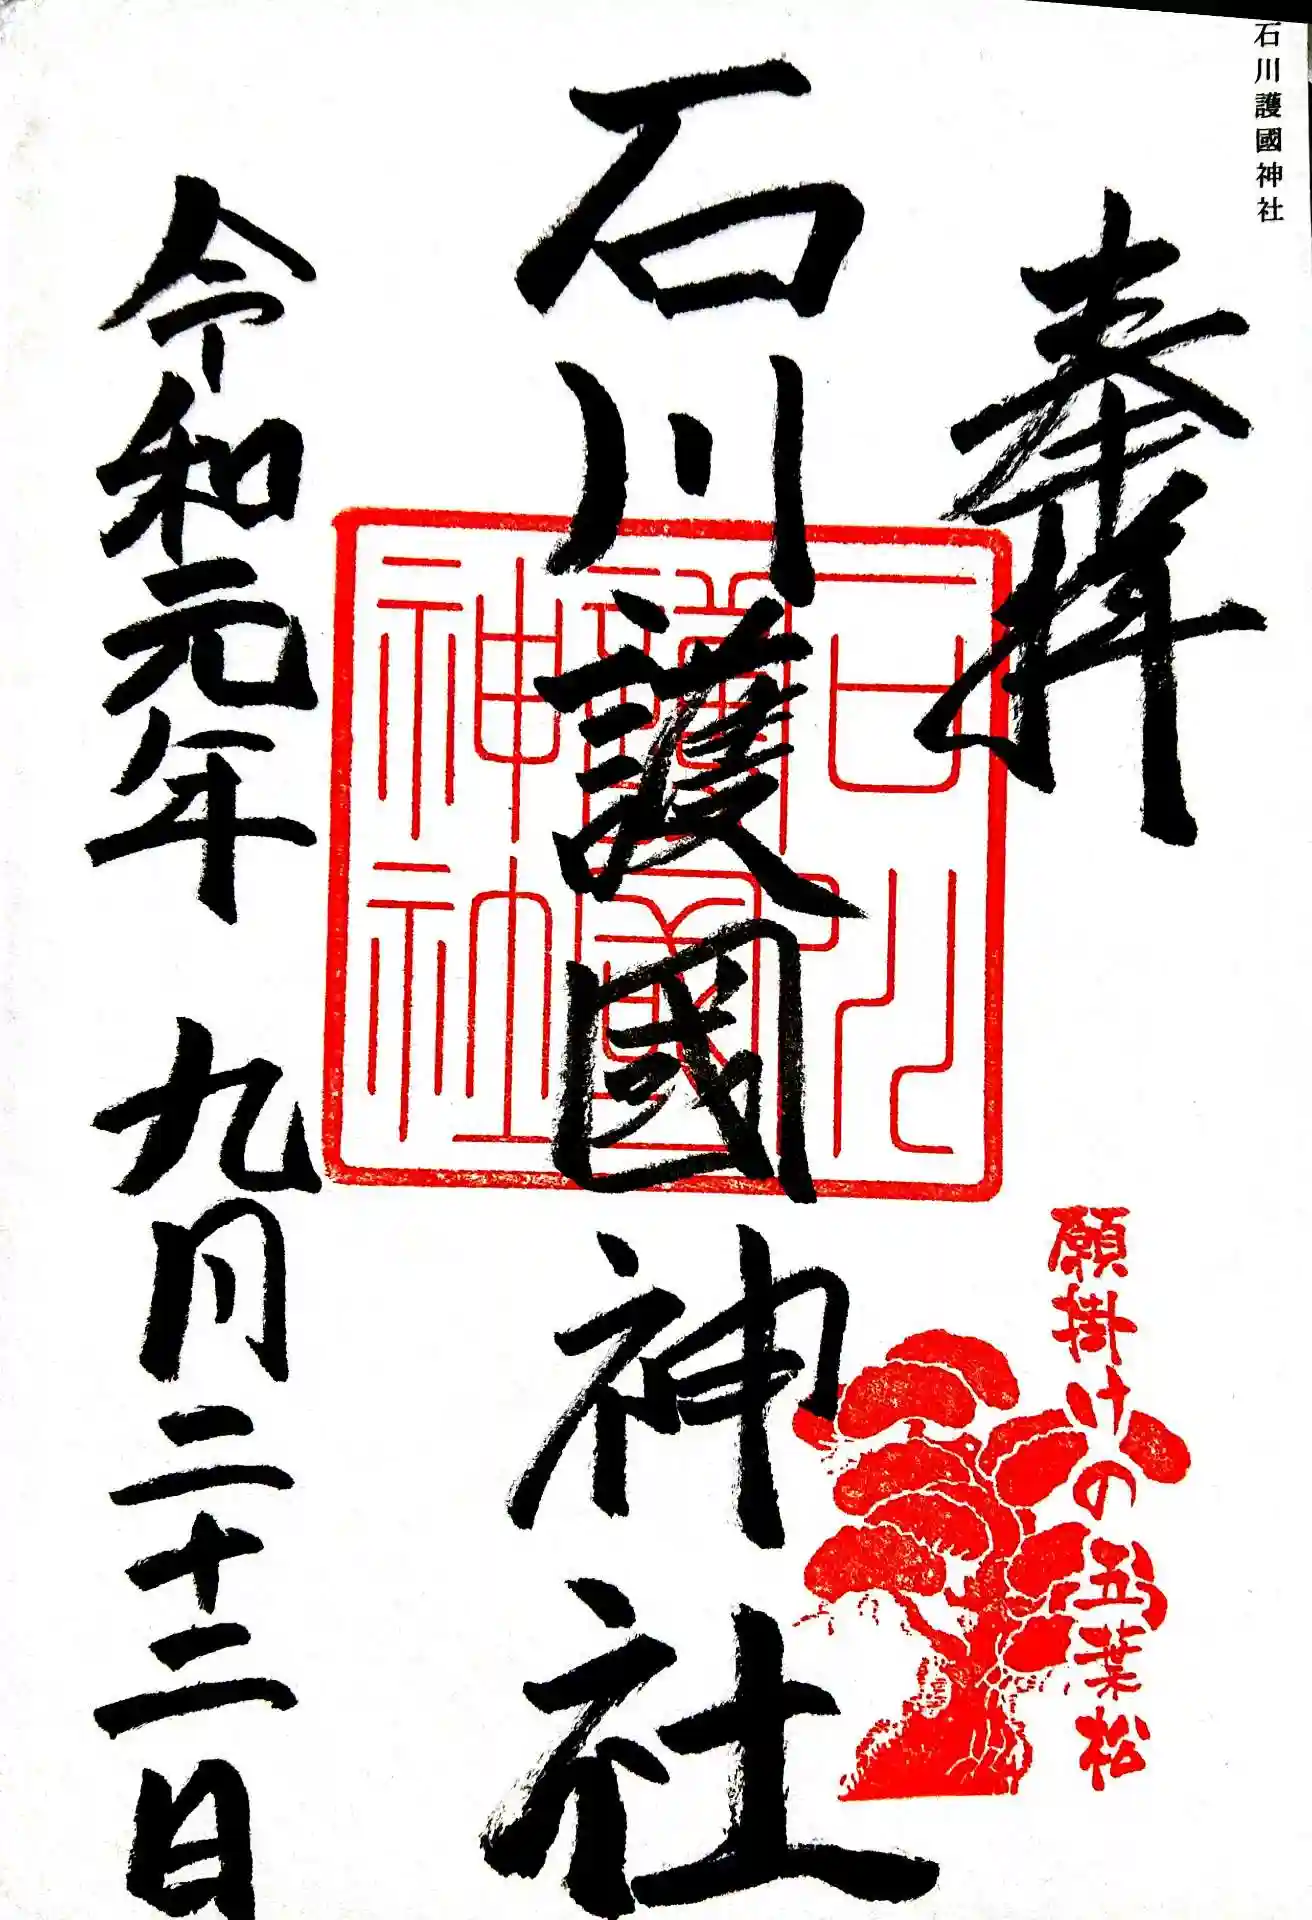 石川護國神社
奉拝
願掛けの五葉松
石川護國神社
石川
護國
神社
令和元年 九月二十二日